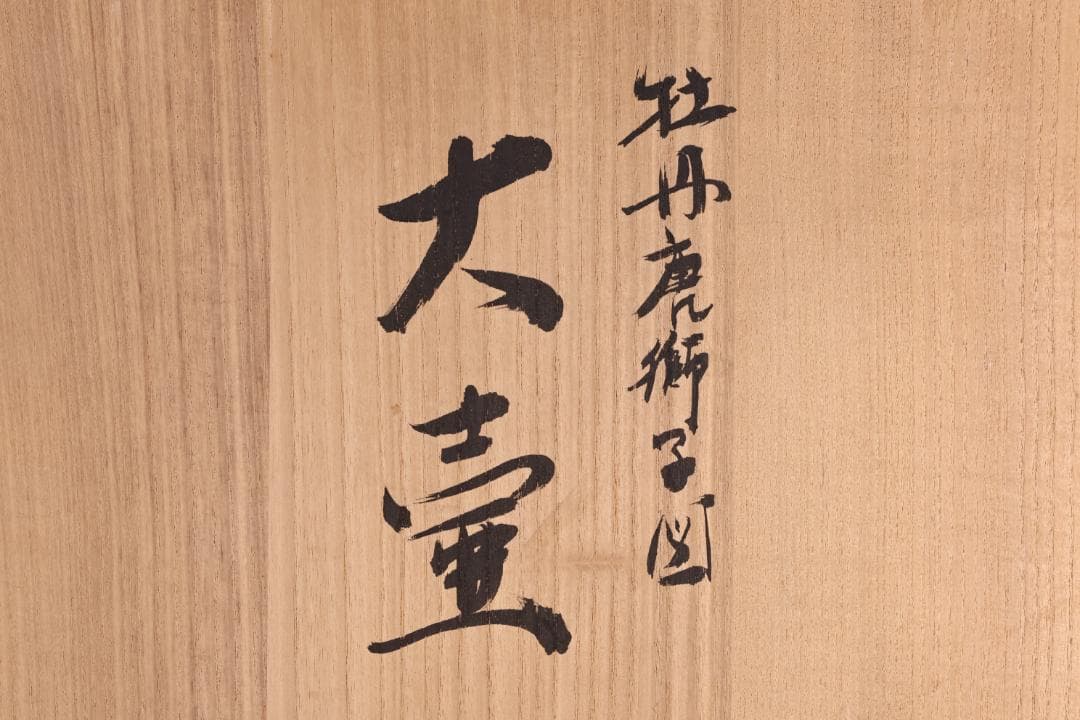 牡丹唐獅子図
大壷